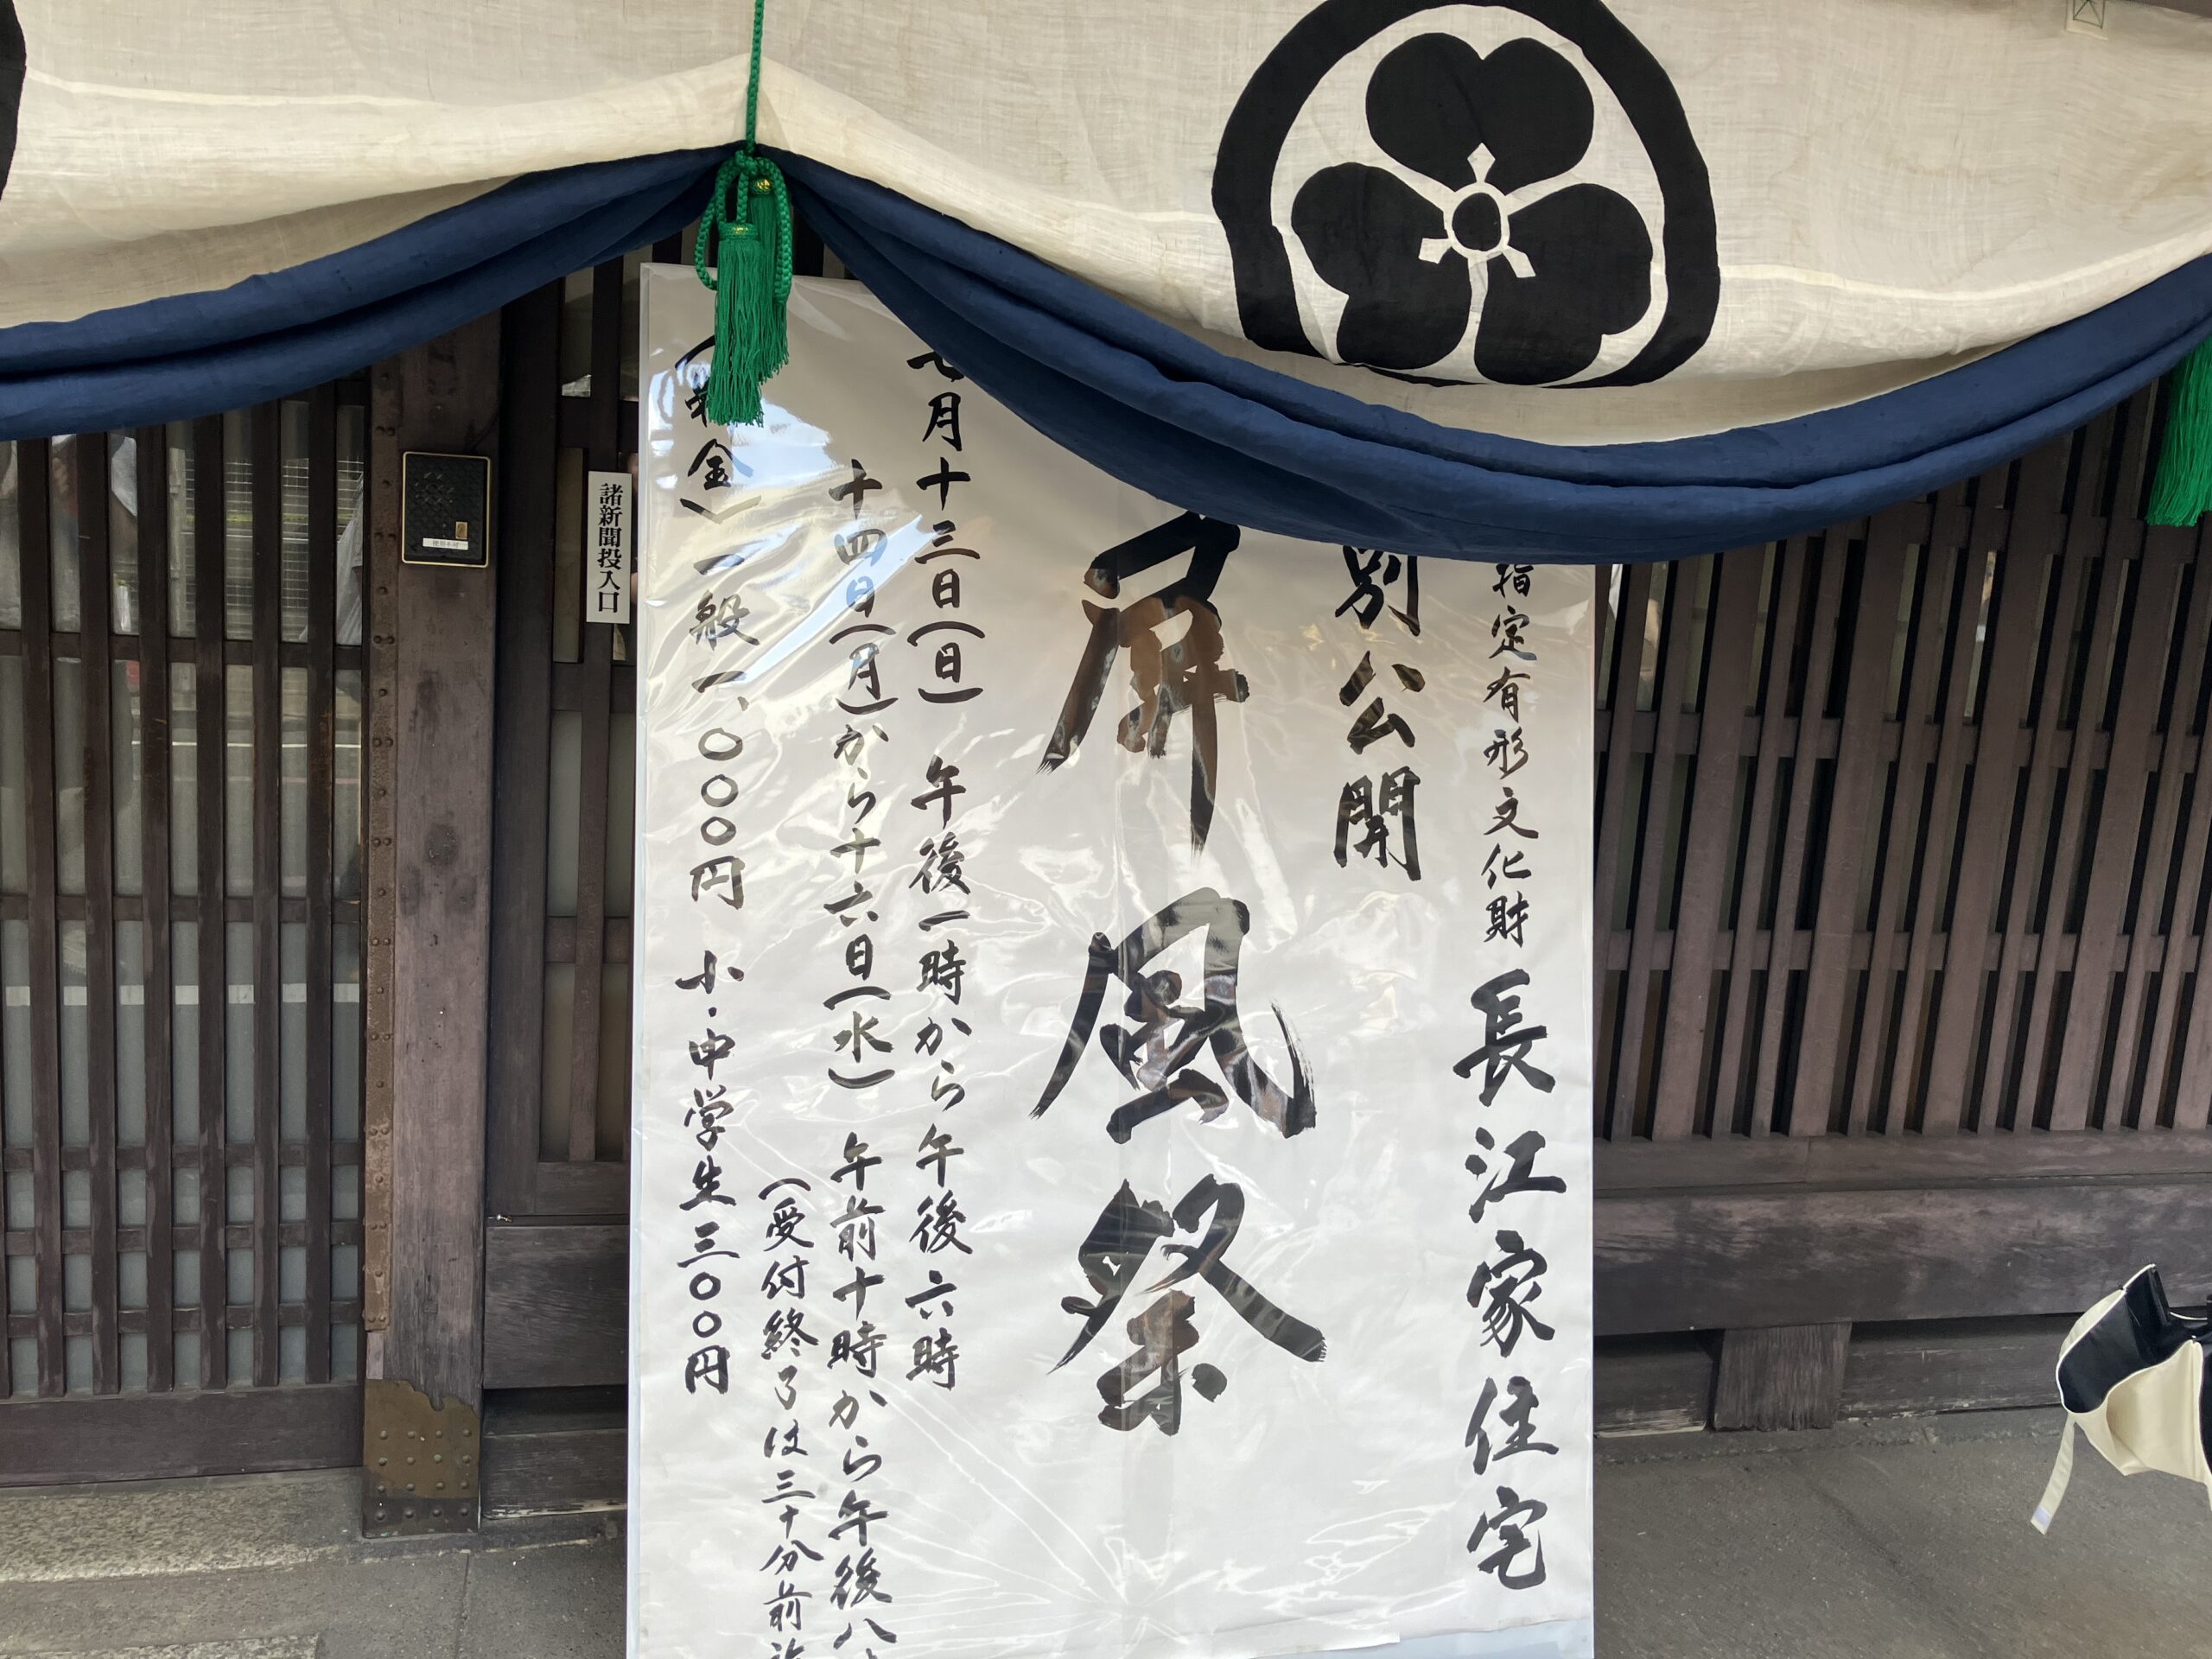 指定有形文化財 長江家住宅
別公開
屏風祭
七月十三日(日) 午後一時から午後六時
十四日(月)から十六日(水) 午前十時から午後八
(受付終了は三十分前
(料金) 一般 一、〇〇〇円 小・中学生 三〇〇円
諸新聞投入口